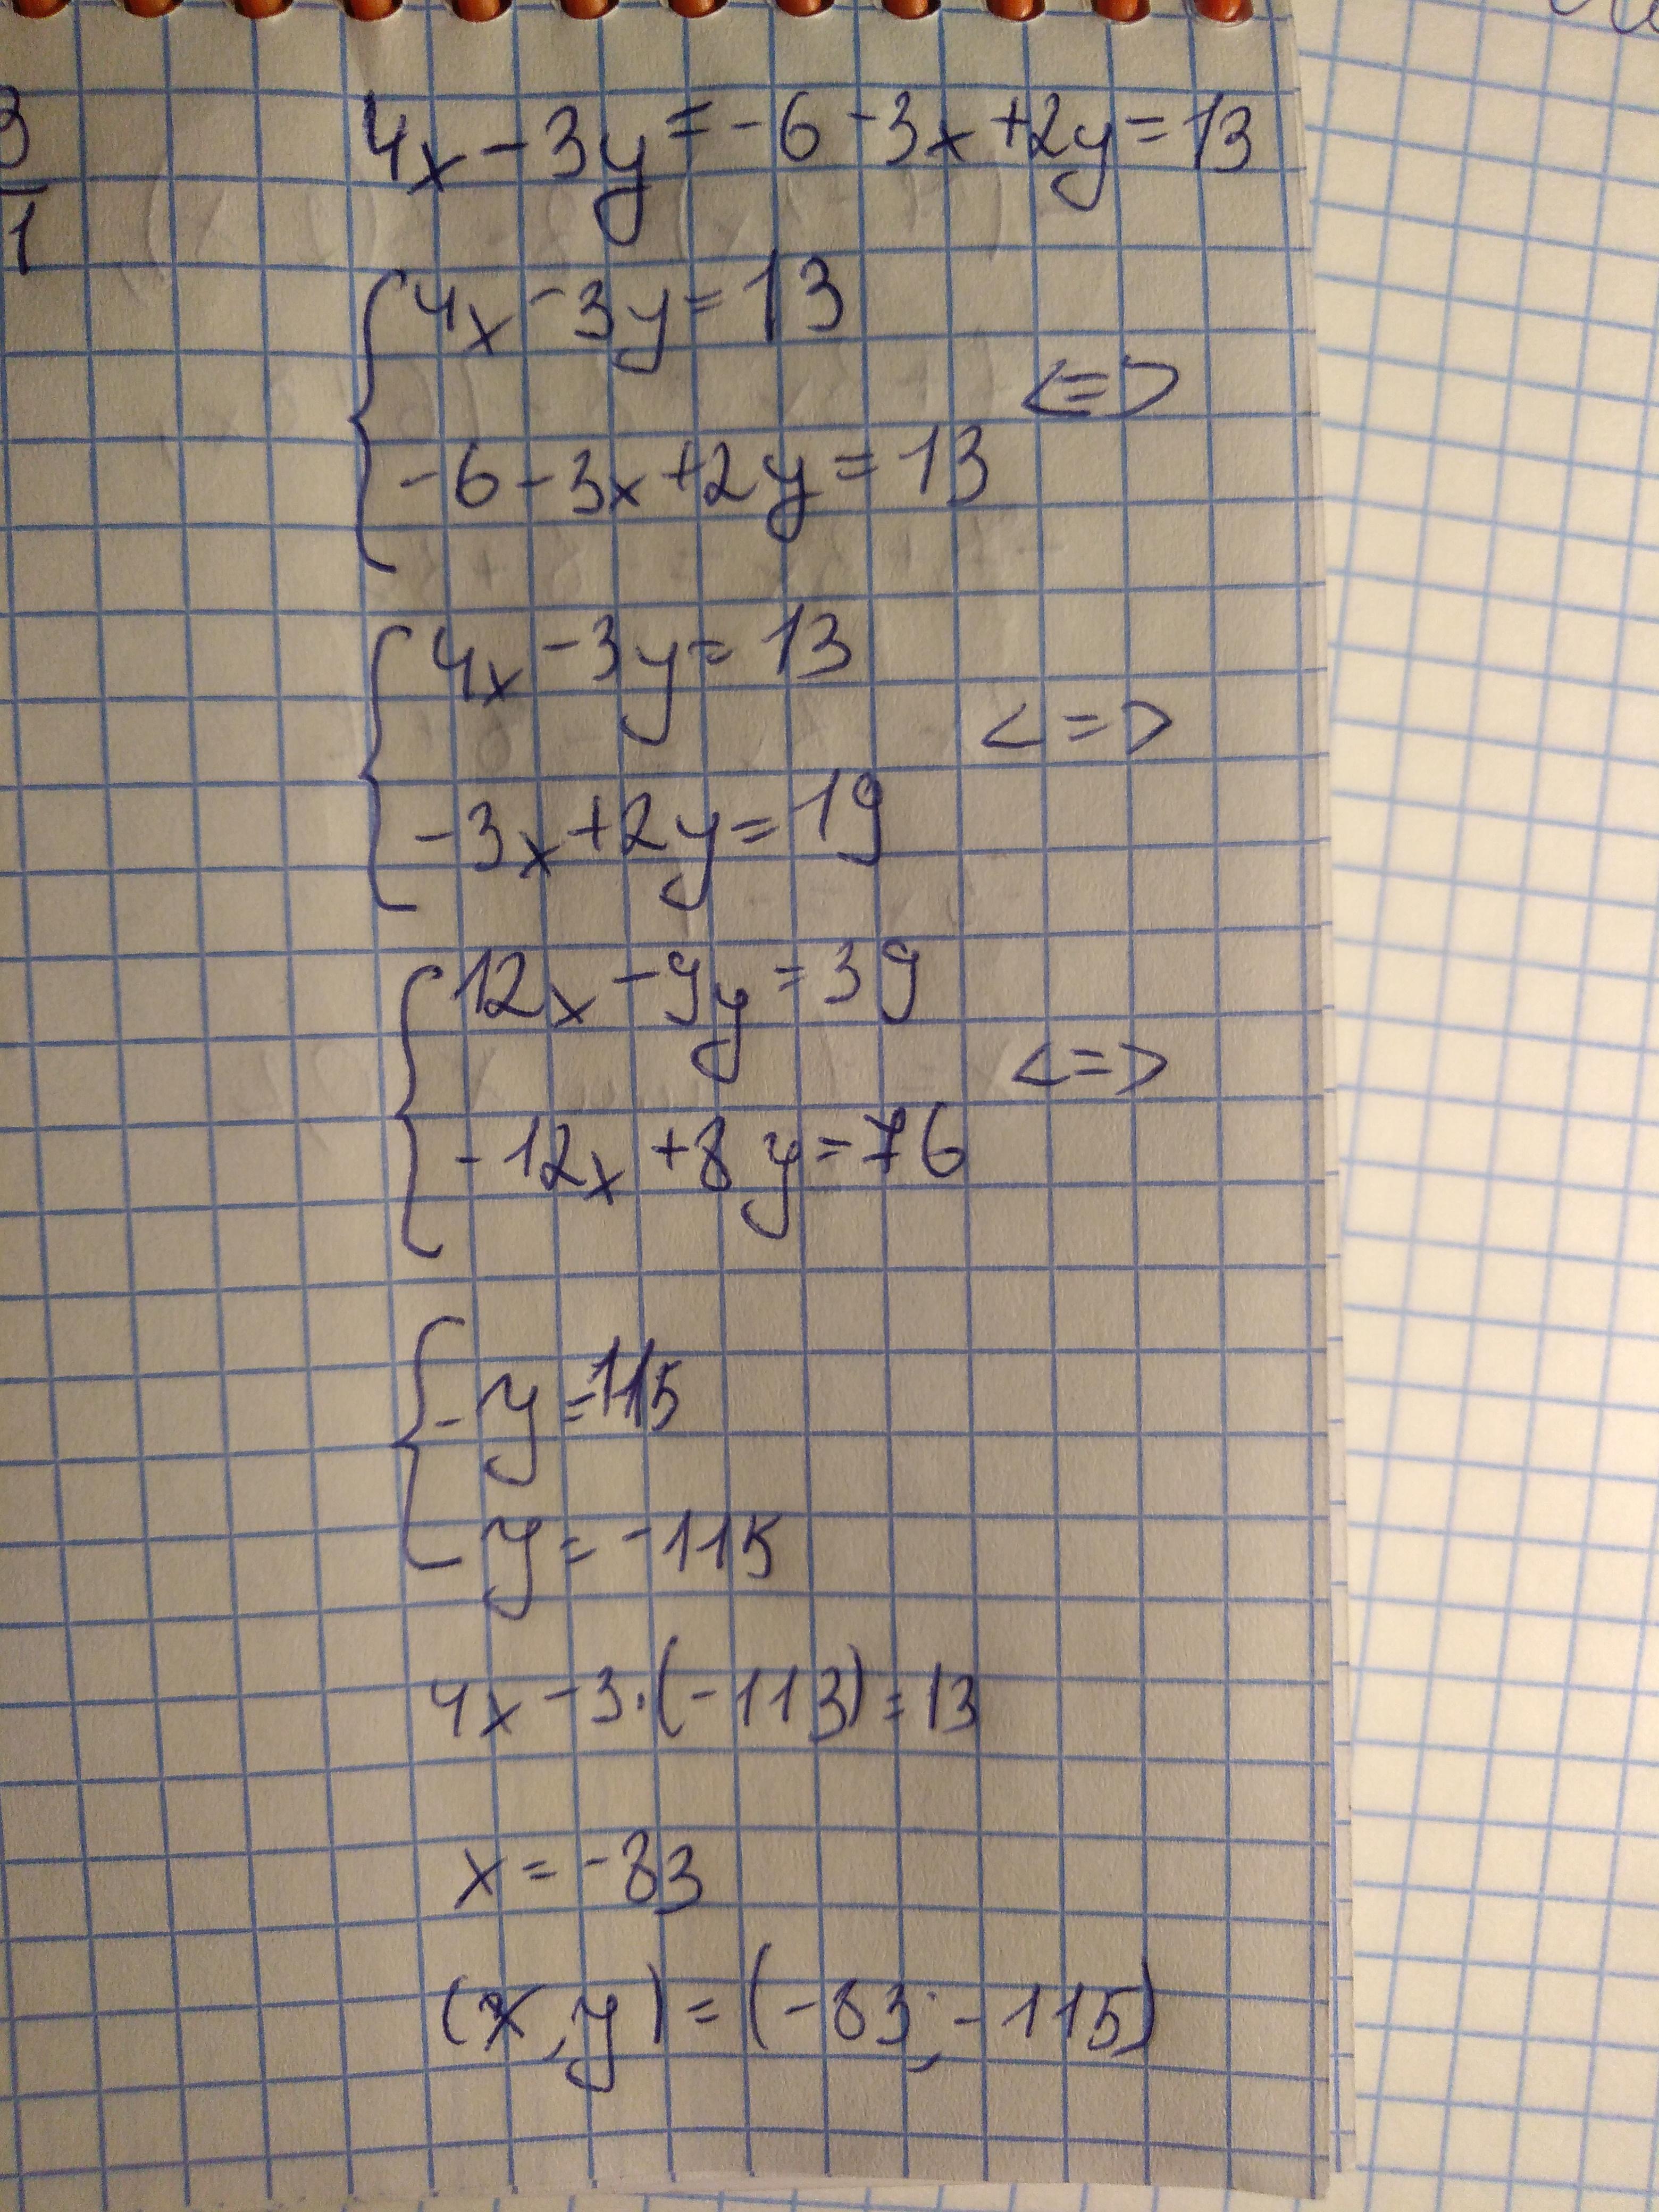 3
1
4x-3y=-6-3x+2y=13
4x-3y=13
<=>
-6-3x+2y=13
4x-3y=13
<=>
-3x+2y=19
12x-9y=39
<=>
-12x+8y=76
-y=115
y=-115
4x-3·(-113)=13
x=-83
(x,y)=(-83;-115)